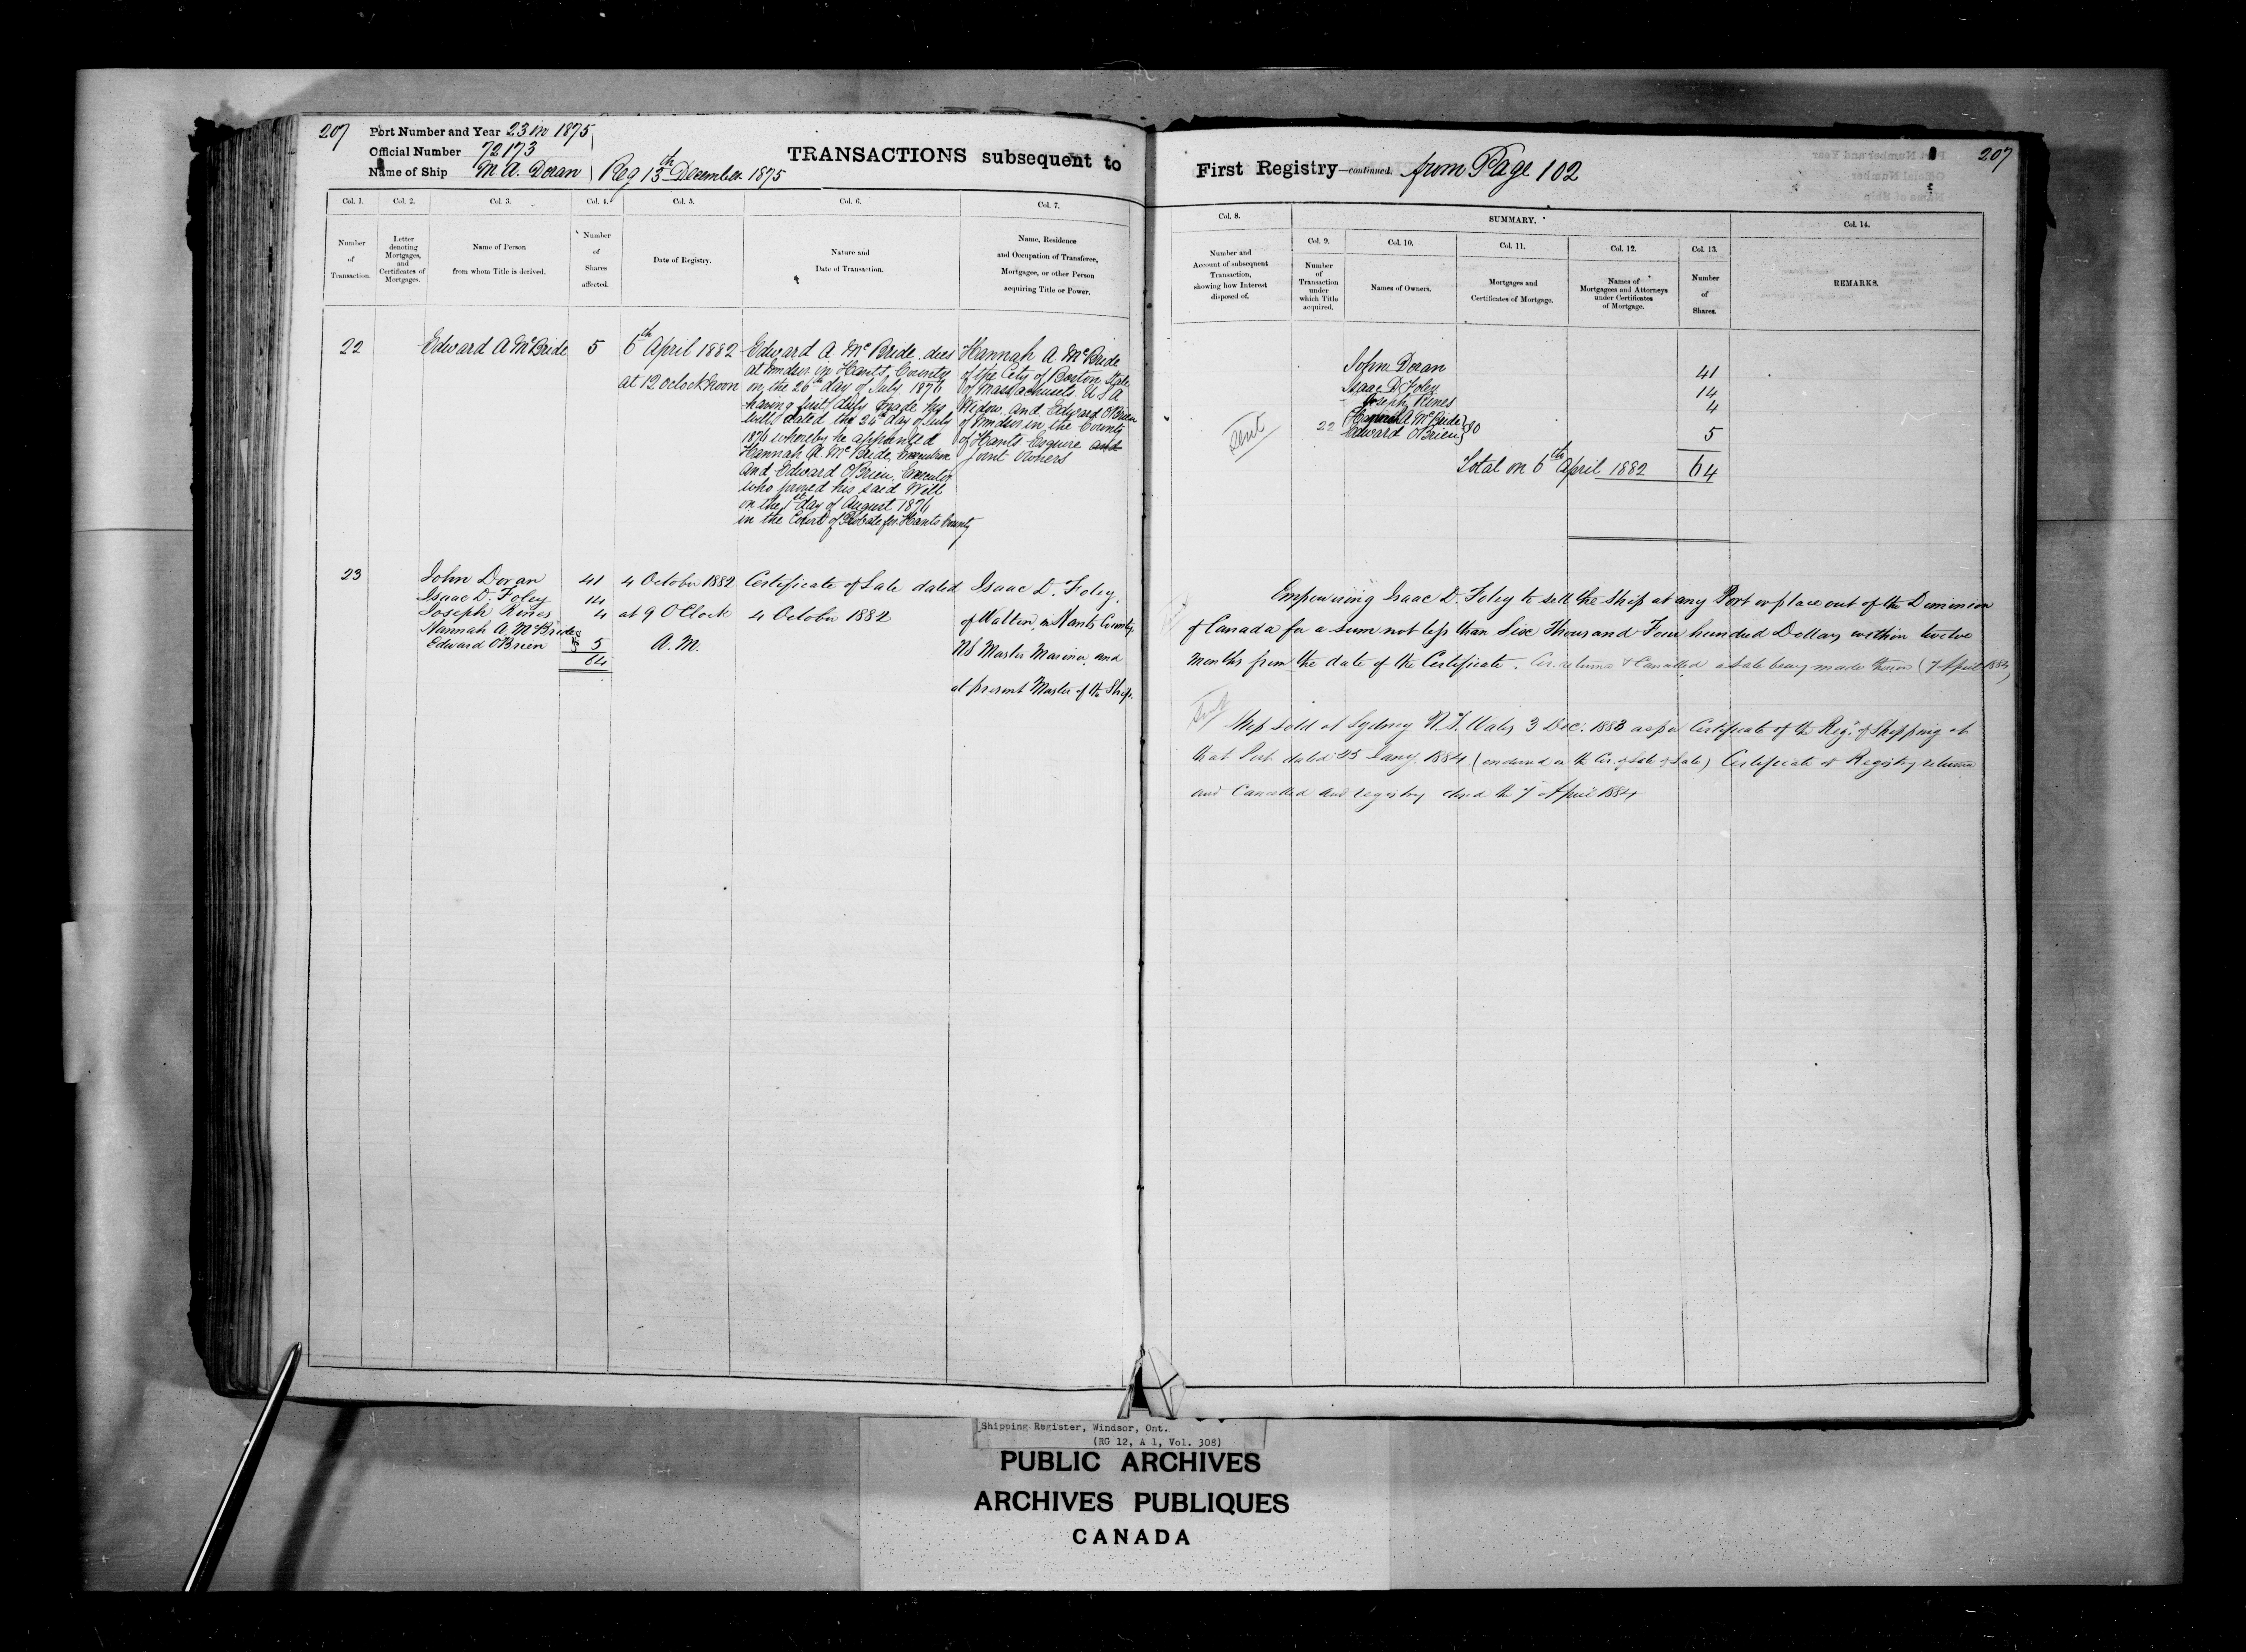 207 Port Number and Year 23 in 1875
Official Number 72173
Name of Ship M A. Doran Reg 13th December 1875
TRANSACTIONS subsequent to
Col. 1. Col. 2. Col. 3. Col. 4. Col. 5. Col. 6. Col. 7.
Number of Transaction.
Letter denoting Mortgages, and Certificates of Mortgages.
Name of Person from whom Title is derived.
Number of Shares affected.
Date of Registry.
Nature and Date of Transaction.
Name, Residence and Occupation of Transferee, Mortgagee, or other Person acquiring Title or Power.
22
Edward A McBride
5
6th April 1882
at 12 oclock noon
Edward A McBride dies
at Windsor in Hants County
on the 26th day of July 1876
having first duly made his
will dated the 24th day of July
1876 whereby he appointed
Hannah A McBride, Executrix
and Edward O'Brien, Executor
who proved his said Will
on the 1st day of August 1876
in the Court of Probate for Hants County
Hannah A McBride
of the City of Boston State
of Massachusets U S A
Widow and Edward O'Brien
of Windsor in the County
of Hants Esquire and
Joint Owners
23
John Doran 41
Isaac D. Foley 14
Joseph Rines 4
Hannah A McBride
Edward O'Brien 5
64
4 October 1882
at 9 O'Clock
A.M.
Certificate of Sale dated
4 October 1882
Isaac D. Foley
of Walton, in Hants County,
NS Master Mariner, and
at present Master of the Ship.
First Registry—continued. from Page 102
207
Col. 8. SUMMARY. Col. 14.
Col. 9. Col. 10. Col. 11. Col. 12. Col. 13.
Number and Account of subsequent Transaction, showing how Interest disposed of.
Number of Transaction under which Title acquired.
Names of Owners.
Mortgages and Certificates of Mortgage.
Names of Mortgagees and Attorneys under Certificates of Mortgage.
Number of Shares.
REMARKS.
John Doran 41
Isaac D Foley 14
Joseph Rines 4
Sent
22 Hannah A McBride
Edward O'Brien 5
Total on 6th April 1882 64
Empowering Isaac D. Foley to sell the Ship at any Port or place out of the Dominion
of Canada for a sum not less than Six Thousand Four hundred Dollars within twelve
months from the date of the Certificate. Cer. returned & Cancelled, a sale being made thereon (7 April 1884)
Sent
Ship sold at Sydney N.S. Wales 3 Dec. 1883 as per Certificate of the Regr of Shipping at
that Port dated 25 Jany. 1884 (endorsed on the Cer. of Sale) Certificate of Registry returned
and Cancelled and registry closed the 7 April 1884
Shipping Register, Windsor, Ont.
(RG 12, A 1, Vol. 308)
PUBLIC ARCHIVES
ARCHIVES PUBLIQUES
CANADA